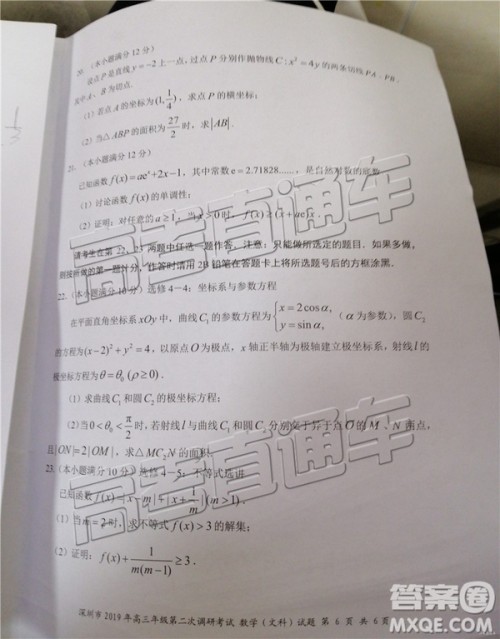 20.（本小题满分12分）
设点P是直线y=−2上一点，过点P分别作抛物线C: x²=4y的两条切线PA、PB，
其中A、B为切点.
（1）若点A的坐标为(1, 1/4)，求点P的横坐标；
（2）当△ABP的面积为27/2时，求|AB|.
21.（本小题满分12分）
已知函数f(x)=aeˣ+2x−1，其中常数e=2.71828……，是自然对数的底数.
（1）讨论函数f(x)的单调性；
（2）证明：对任意的a≥1，当x>0时，f(x)≥(x+ae)x.
请考生在第22、23两题中任选一题作答.注意：只能做所选定的题目.如果多做，
则按所做的第一题计分，作答时请用2B铅笔在答题卡上将所选题号后的方框涂黑.
22.（本小题满分10分）选修4−4：坐标系与参数方程
在平面直角坐标系xOy中，曲线C₁的参数方程为{x=2cosα, y=sinα,（α为参数），圆C₂
的方程为(x−2)²+y²=4，以原点O为极点，x轴正半轴为极轴建立极坐标系，射线l的
极坐标方程为θ=θ₀(ρ≥0).
（1）求曲线C₁和圆C₂的极坐标方程；
（2）当0<θ₀<π/2时，若射线l与曲线C₁和圆C₂分别交于异于点O的M、N两点，
且|ON|=2|OM|，求△MC₂N的面积.
23.（本小题满分10分）选修4−5：不等式选讲
已知函数f(x)=|x−m|+|x+1/m|(m>1).
（1）当m=2时，求不等式f(x)>3的解集；
（2）证明：f(x)+1/(m(m−1))≥3.
深圳市2019年高三年级第二次调研考试 数学（文科）试题 第6页 共6页
高考直通车
高考直通车
答案圈
MXQE.COM
1/3